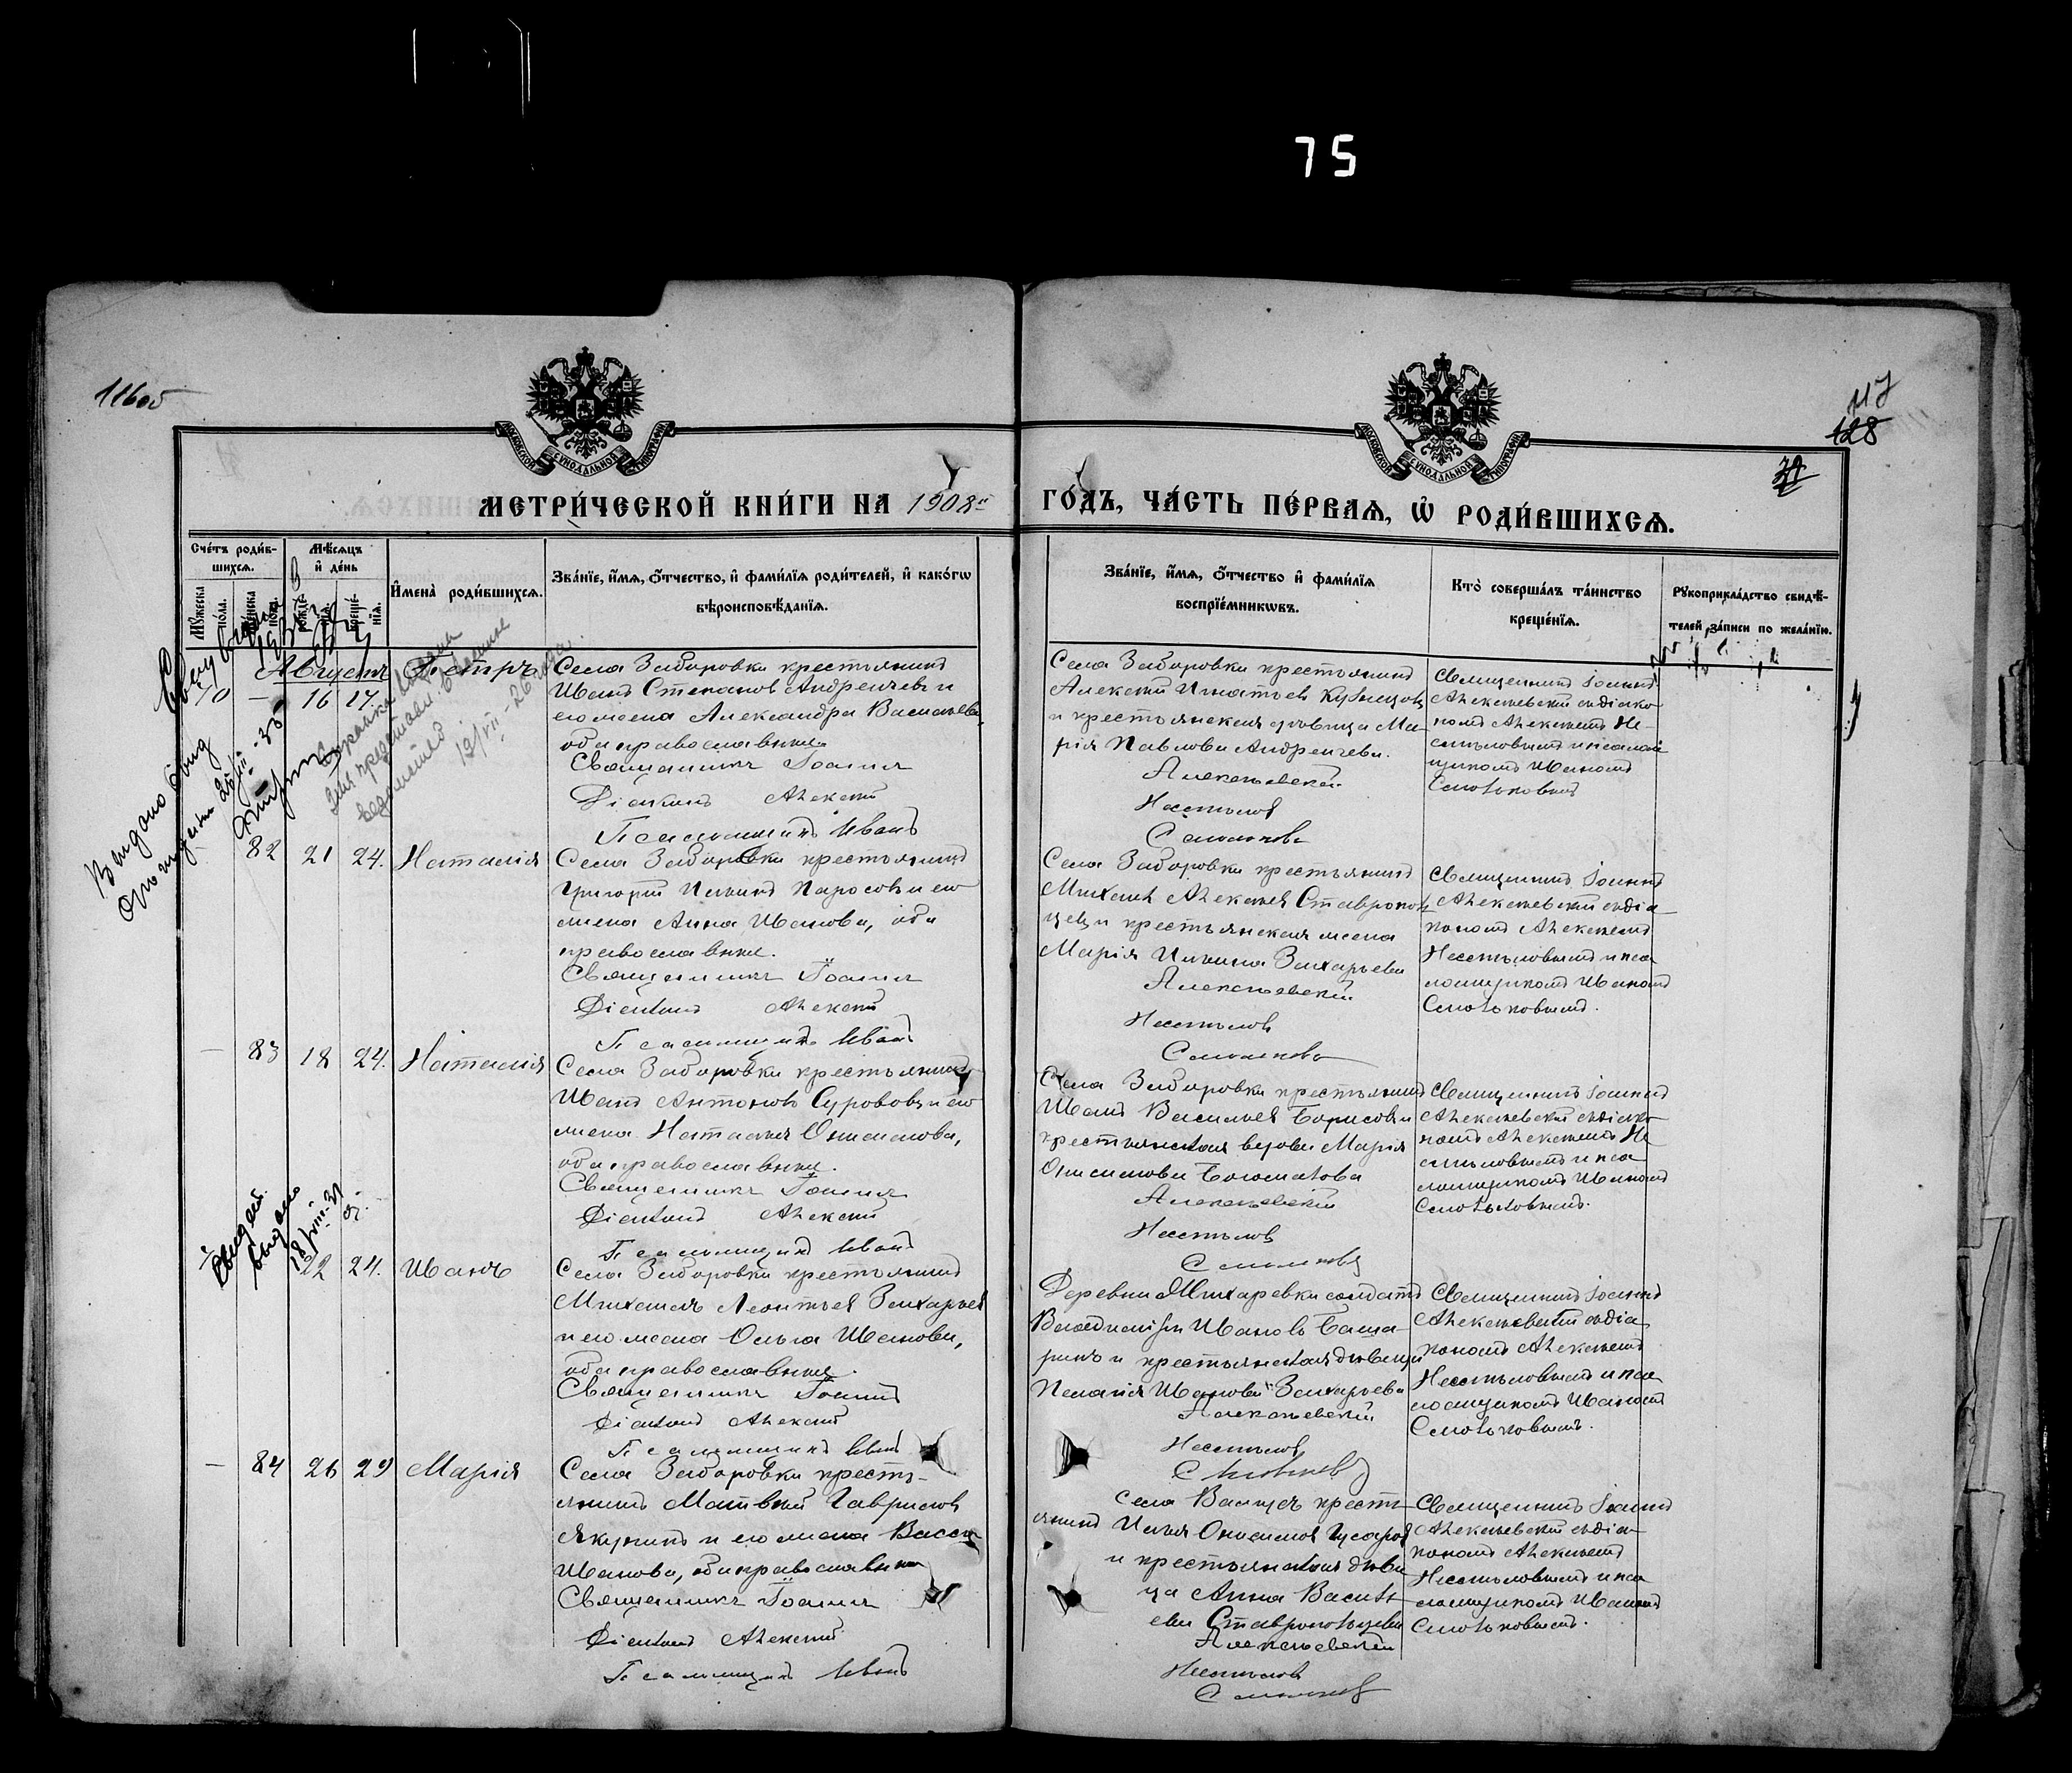 75
116об
117
128
МОСКОВСКОЙ СѴНОДАЛЬНОЙ ТИПОГРАФІИ
МОСКОВСКОЙ СѴНОДАЛЬНОЙ ТИПОГРАФІИ
МЕТРИ́ЧЕСКОЙ КНИ́ГИ НА 1908й ГО́ДЪ, ЧА́СТЬ ПЕ́РВАѦ, Ѡ҆ РОДИ́ВШИХСѦ.
Сче́тъ роди́в-
шихсѧ.
Мꙋжеска по́ла.
Женска пола.
Мѣ́сѧцъ
и҆ де́нь
рожде́нїѧ.
креще́нїѧ.
И҆мена̀ роди́вшихсѧ.
Зва́нїе, и҆́мѧ, ѻ҆́тчество, и҆ фами́лїѧ роди́телей, и҆ како́гѡ
вѣроисповѣ́данїѧ.
Зва́нїе, и҆́мѧ, ѻ҆́тчество и҆ фами́лїѧ
воспрїе́мникѡвъ.
Кто̀ соверша́лъ та́инство
креще́нїѧ.
Рꙋкоприкла́дство свидѣ́-
телей за́писи по жела́нїю.
Августъ
70 — 16 17. Петръ
Села Заборовки крестьянинъ
Иванъ Степановъ Андреичевъ и
его жена Александра Васильева,
оба православные
Священникъ Іоаннъ
Діаконъ Алексій
Псаломщикъ Иванъ
Села Заборовки крестьянинъ
Алексѣй Игнатьевъ Кузнецовъ
и крестьянская дѣвица Ма-
рія Павлова Андреичева.
Алексѣевскій
Несмѣловъ
Смольковъ
Священникъ Іоаннъ
Алексѣевскій съ діако-
номъ Алексѣемъ Не-
смѣловымъ и псалом-
щикомъ Иваномъ
Смольковымъ
82 21 24. Наталія
Села Заборовки крестьянинъ
Григорій Ильинъ Паросовъ и его
жена Анна Иванова, оба
православные.
Священникъ Іоаннъ
Діаконъ Алексій
Псаломщикъ Иванъ
Села Заборовки крестьянинъ
Михаилъ Алексѣевъ Ставрополь-
цевъ и крестьянская жена
Марія Ильина Захарьева
Алексѣевскій
Несмѣловъ
Смольковъ
Священникъ Іоаннъ
Алексѣевскій съ діа-
кономъ Алексѣемъ
Несмѣловымъ и пса-
ломщикомъ Иваномъ
Смольковымъ.
— 83 18 24. Наталія
Села Заборовки крестьянинъ
Иванъ Антоновъ Сурововъ и его
жена Наталья Онисимова,
оба православные.
Священникъ Іоаннъ
Діаконъ Алексій
Псаломщикъ Иванъ
Села Заборовки крестьянинъ
Иванъ Васильевъ Борисовъ и
крестьянская вдова Марія
Онисимова Богоматова
Алексѣевскій
Несмѣловъ
Смольковъ
Священникъ Іоаннъ
Алексѣевскій съ діако-
номъ Алексѣемъ Не-
смѣловымъ и пса-
ломщикомъ Иваномъ
Смольковымъ.
22 24. Иванъ
Села Заборовки крестьянинъ
Михаилъ Леонтьевъ Захарьевъ
и его жена Ольга Иванова,
оба православные.
Священникъ Іоаннъ
Діаконъ Алексій
Псаломщикъ Иванъ
Деревни Жихаревки солдатъ
Владиміръ Ивановъ Баша-
ринъ и крестьянская дѣвица
Пелагія Иванова Захарьева
Алексѣевскій
Несмѣловъ
Смольковъ
Священникъ Іоаннъ
Алексѣевскій съ діа-
кономъ Алексѣемъ
Несмѣловымъ и пса-
ломщикомъ Иваномъ
Смольковымъ.
— 84 26 29 Марія
Села Заборовки кресть-
янинъ Матвѣй Гавриловъ
Якунинъ и его жена Васса
Иванова, оба православные
Священникъ Іоаннъ
Діаконъ Алексій
Псаломщикъ Иванъ
Села Валуцъ кресть-
янинъ Илья Онисимовъ Гусаровъ
и крестьянская дѣви-
ца Анна Василь-
ева Ставропольцева
Алексѣевскій
Несмѣловъ
Смольковъ
Священникъ Іоаннъ
Алексѣевскій съ діа-
кономъ Алексѣемъ
Несмѣловымъ и пса-
ломщикомъ Иваномъ
Смольковымъ.
Выдано
Свидет.
выдано
18/VIII-31